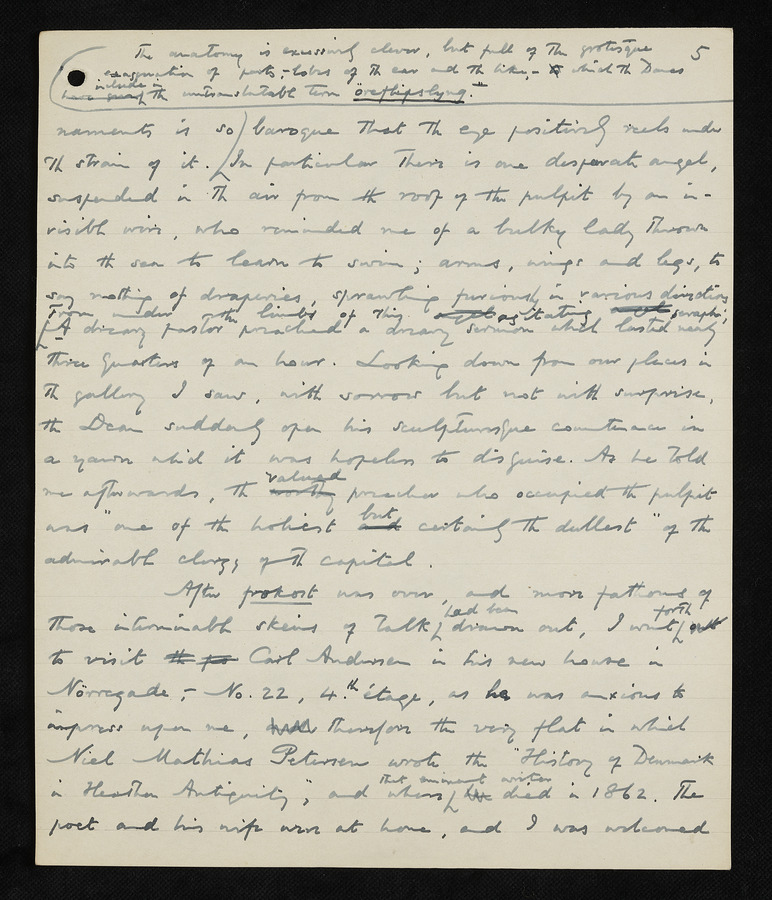 The anatomy is excessively clever, but full of the grotesque 5
exaggeration of parts, – lobes of the ear and the like, – which the Danes
include in
the untranslatable term "öreflipslyng."
naments is so) baroque that the eye positively reels under
the strain of it. In particular there is one desperate angel,
suspended in the air from the roof of the pulpit by an in-
visible wire, who reminded me of a bulky lady thrown
into the sea to learn to swim; arms, wings and legs, to
say nothing of draperies, sprawling furiously in various directions
From under the limbs of this agitating seraph,
A dreary pastor preached a dreary sermon which lasted nearly
three quarters of an hour. Looking down from our places in
the gallery I saw, with sorrow but not with surprise,
the Dean suddenly open his sculpturesque countenance in
a yawn which it was hopeless to disguise. As he told
valued
me afterwards, the worthy preacher who occupied the pulpit
but
was "one of the holiest and certainly the dullest" of the
admirable clergy of the capital.
After frokost was over, and more fathoms of
had been forth
those interminable skeins of talk drawn out, I went out
to visit Carl Andersen in his new house in
Nörregade, – No. 22, 4.th étage, as he was anxious to
impress upon me, therefore the very flat in which
Niel Mathias Petersen wrote the "History of Denmark
that eminent writer
in Heathen Antiquity", and where he died in 1862. The
poet and his wife were at home, and I was welcomed